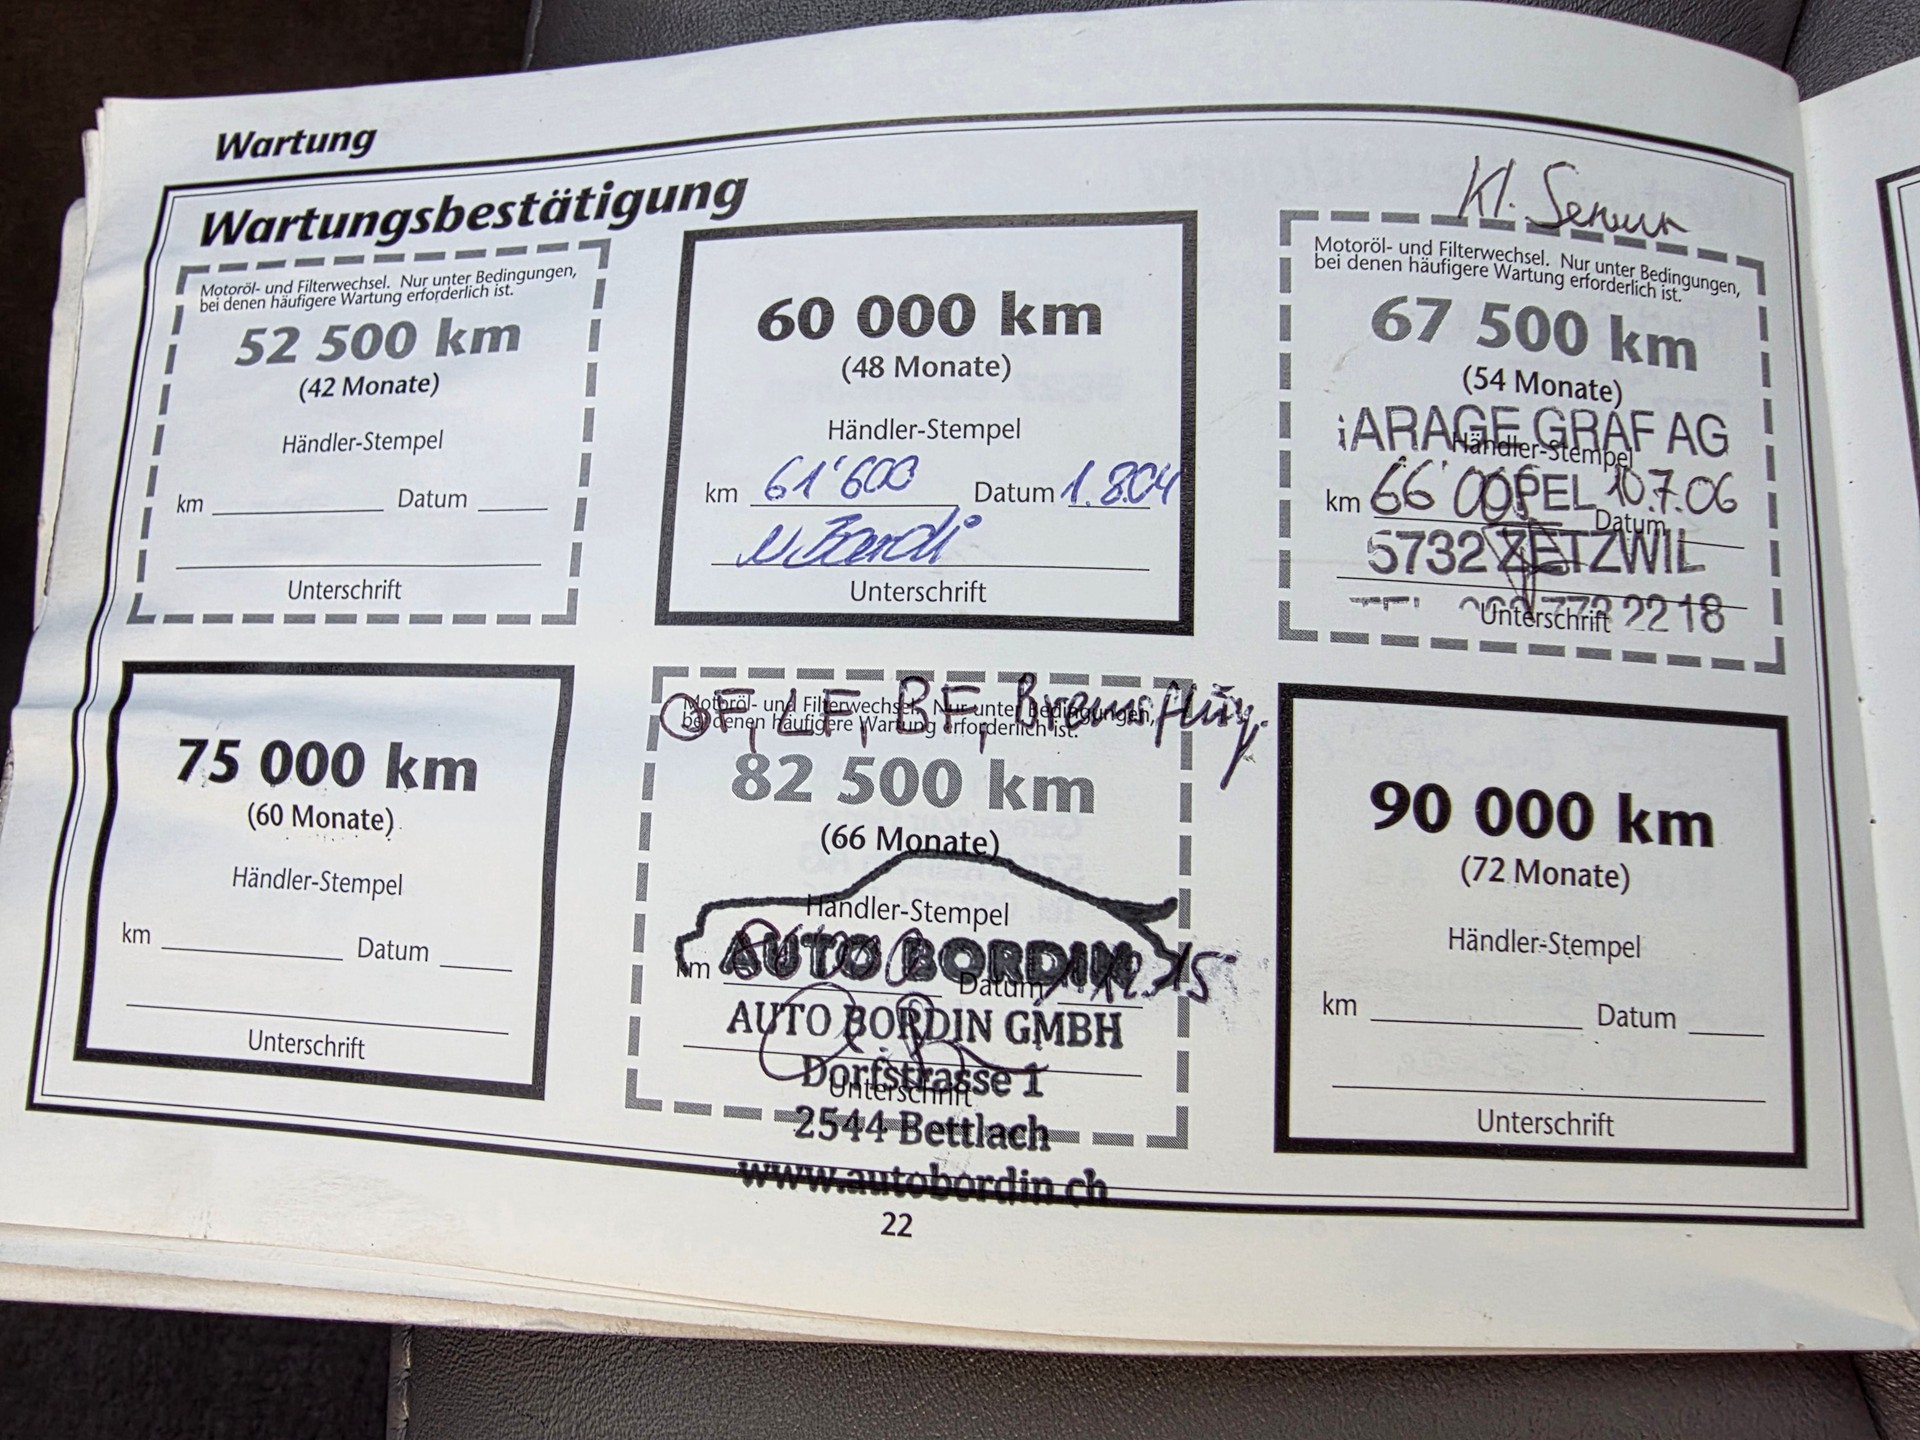 Wartung
Wartungsbestätigung
Motoröl- und Filterwechsel. Nur unter Bedingungen,
bei denen häufigere Wartung erforderlich ist.
52 500 km
(42 Monate)
Händler-Stempel
km Datum
Unterschrift
60 000 km
(48 Monate)
Händler-Stempel
km 61'600 Datum 1.8.04
Unterschrift
Kl. Service
Motoröl- und Filterwechsel. Nur unter Bedingungen,
bei denen häufigere Wartung erforderlich ist.
67 500 km
(54 Monate)
ARAGE GRAF AG
Händler-Stempel
km 66'00 OPEL 10.7.06
Datum
5732 ZETZWIL
Unterschrift 773 22 18
75 000 km
(60 Monate)
Händler-Stempel
km Datum
Unterschrift
OF, LF, BF, Bremsflüss.
Motoröl- und Filterwechsel. Nur unter Bedingungen,
bei denen häufigere Wartung erforderlich ist.
82 500 km
(66 Monate)
Händler-Stempel
AUTO BORDIN
km Datum 12.15
AUTO BORDIN GMBH
Dorfstrasse 1
Unterschrift
2544 Bettlach
www.autobordin.ch
90 000 km
(72 Monate)
Händler-Stempel
km Datum
Unterschrift
22